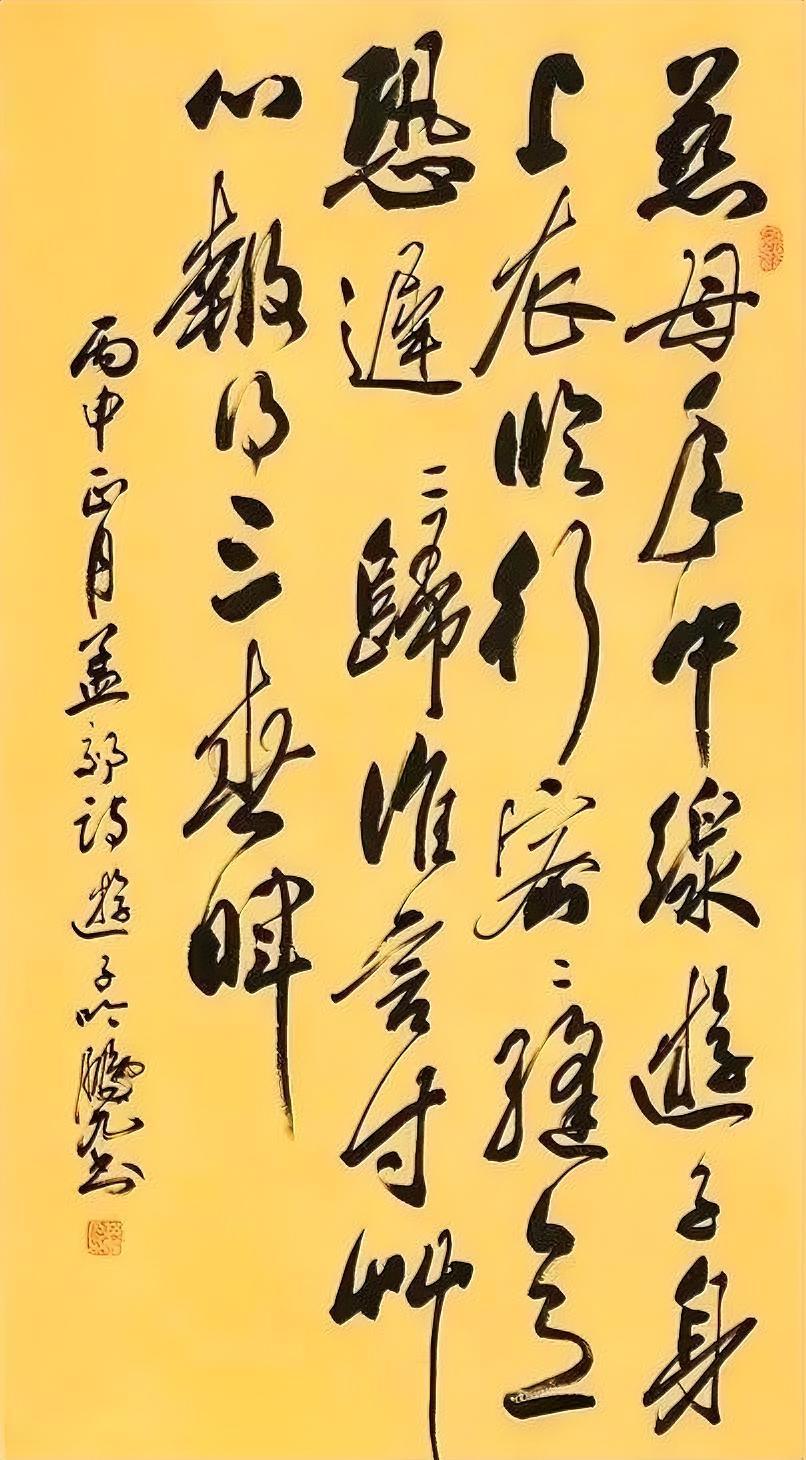 慈母手中線遊子身
上衣臨行密〻縫意
恐遲〻歸誰言寸艸
心報得三春暉
丙申正月孟郊詩遊子吟鵬書